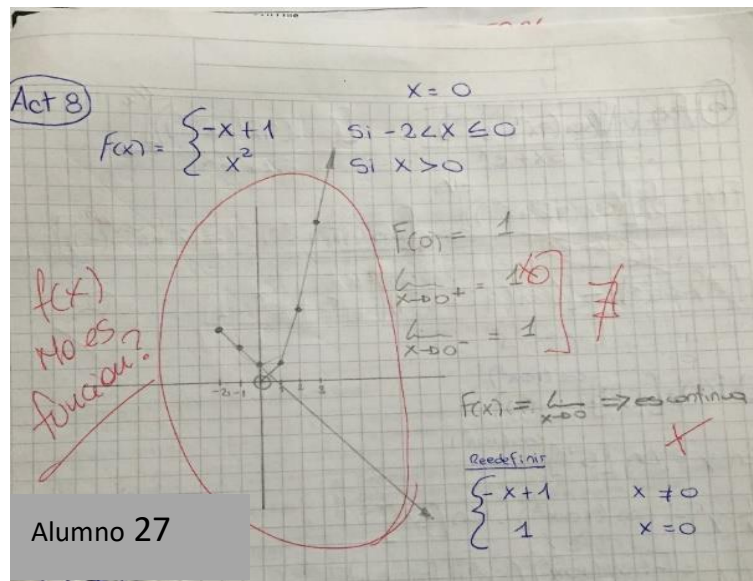 Act 8
x = 0
F(x) = { -x + 1 Si -2 < x ≤ 0
x² Si x > 0
F(0) = 1
L x→0+ = 1 0
L x→0- = 1
∄
f(x)
no es
función?
-2 -1 1 2 3
F(x) = L x→0 ⇒ es continua
x
Reedefinir
{ -x + 1 x ≠ 0
1 x = 0
Alumno 27